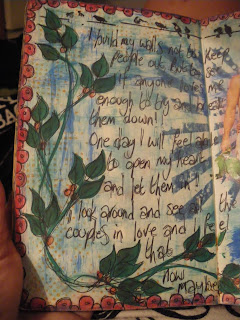 I build my walls not to keep
people out but to see
if anyone loves me
enough to try and break
them down!
One day I will feel able
to open my heart
and let them in!
I look around and see all the
couples in love and I feel
that
How!
Maybe